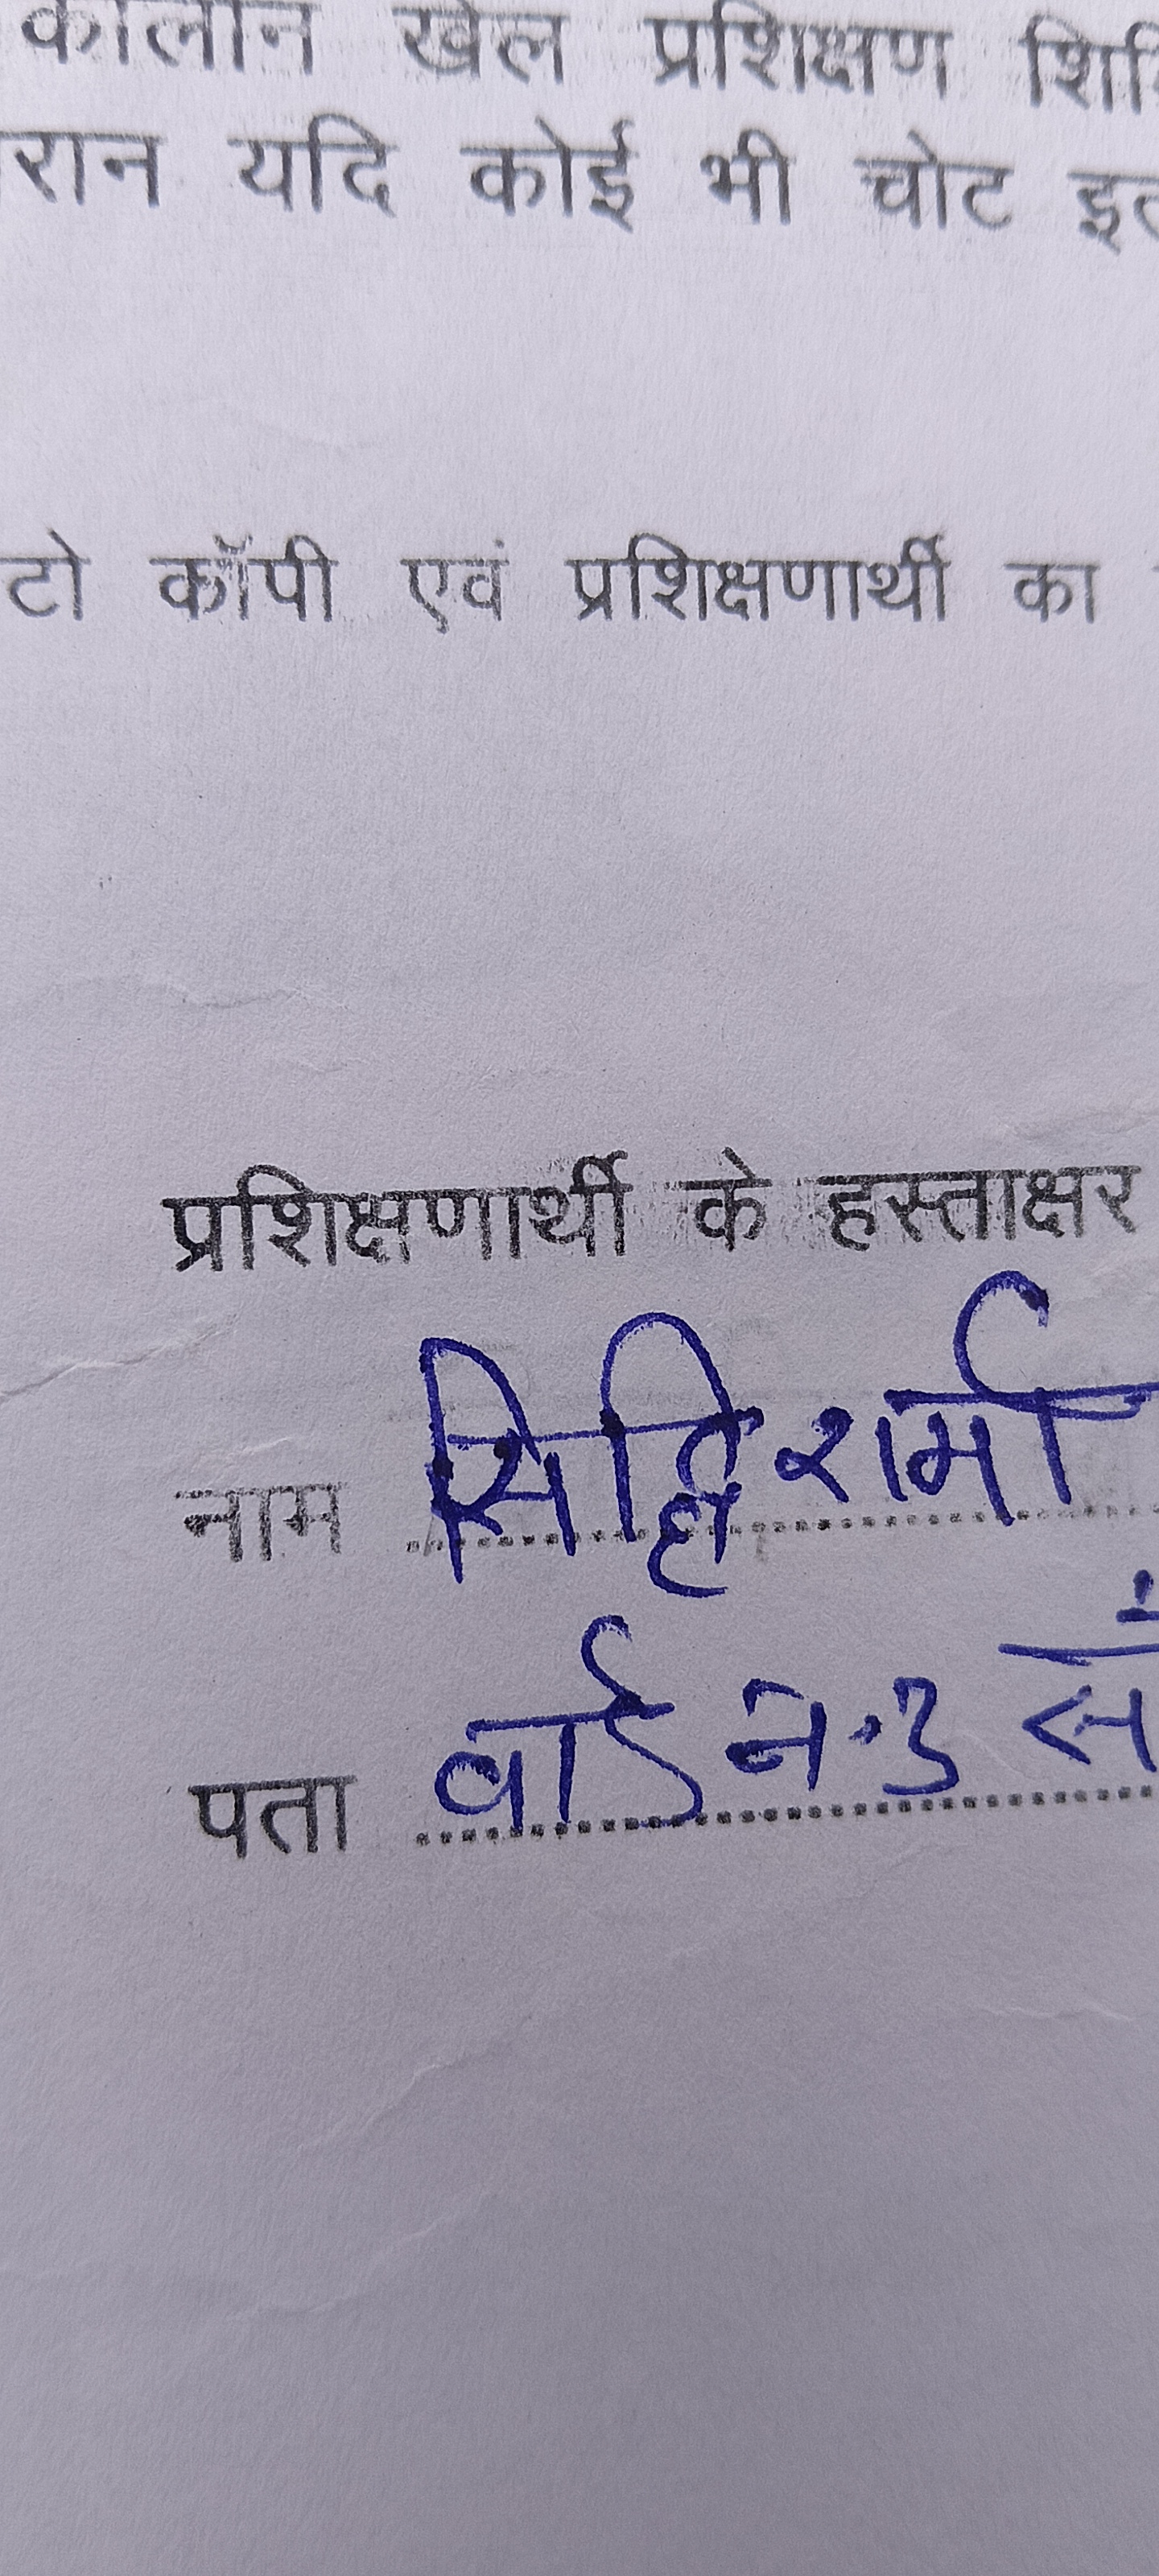 कालीन खेल प्रशिक्षण
रान यदि कोई भी चोट
टो कॉपी एवं प्रशिक्षणार्थी का
प्रशिक्षणार्थी के हस्ताक्षर
नाम सिद्धि शर्मा
पता वार्ड न.3